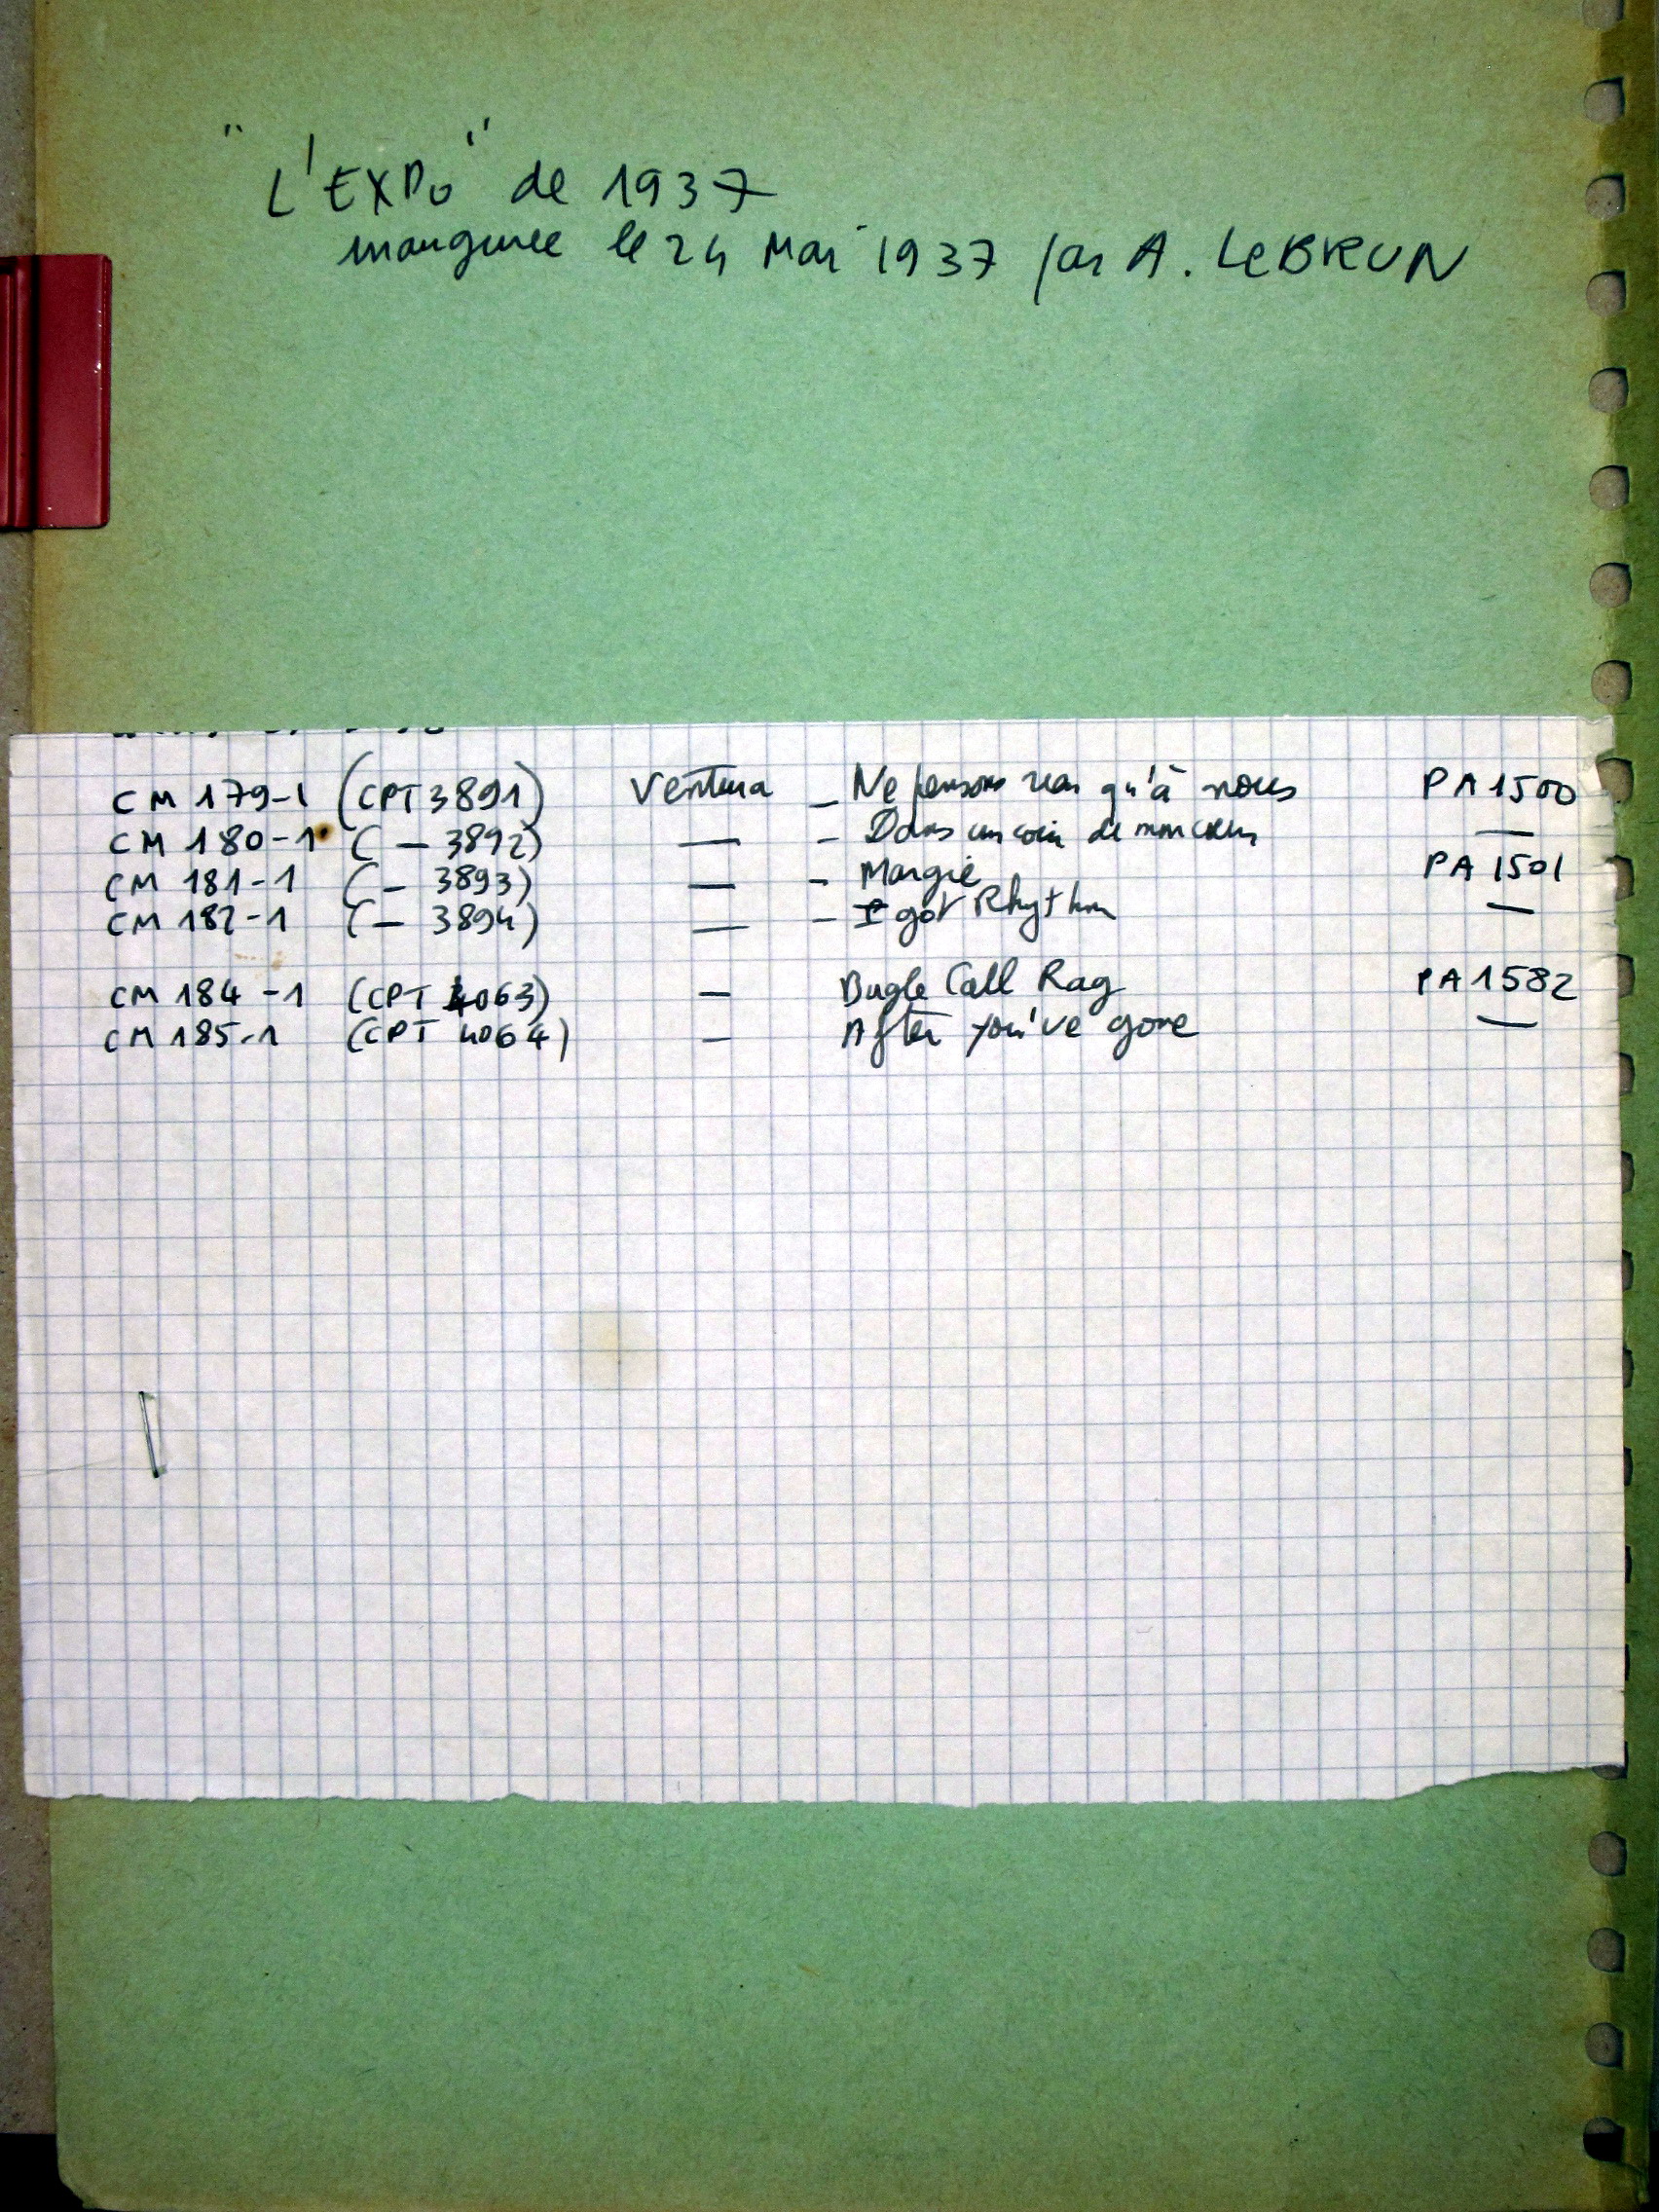 "L'EXPO" de 1937
inaugurée le 24 Mai 1937 par A. LEBRUN
CM 179-1 (CPT 3891) Ventura – Ne pensons rien qu'à nous PA 1500
CM 180-1 ( – 3892) — – Dans un coin de mon cœur —
CM 181-1 ( – 3893) — – Margie PA 1501
CM 182-1 ( – 3894) — – I got Rhythm —
CM 184-1 (CPT 4063) — Bugle Call Rag PA 1582
CM 185-1 (CPT 4064) — After you've gone —